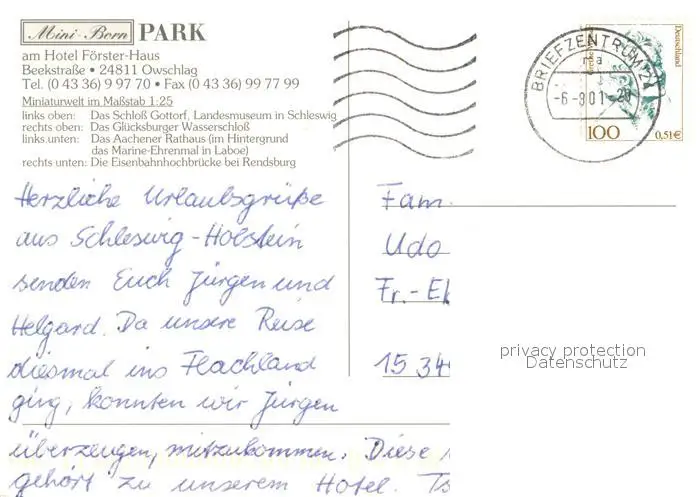 Mini-Born PARK
am Hotel Förster-Haus
Beekstraße • 24811 Owschlag
Tel. (0 43 36) 9 97 70 • Fax (0 43 36) 99 77 99
Miniaturwelt im Maßstab 1:25
links oben: Das Schloß Gottorf, Landesmuseum in Schleswig
rechts oben: Das Glücksburger Wasserschloß
links unten: Das Aachener Rathaus (im Hintergrund
das Marine-Ehrenmal in Laboe)
rechts unten: Die Eisenbahnhochbrücke bei Rendsburg
Herzliche Urlaubsgrüße
aus Schleswig-Holstein
senden Euch Jürgen und
Helgard. Da unsere Reise
diesmal ins Flachland
ging, konnten wir Jürgen
überzeugen, mitzukommen. Diese
gehört zu unserem Hotel.
BRIEFZENTRUM 24
Deutschland
100
0,51€
Fam.
Udo
Fr.-
15 34
privacy protection
Datenschutz